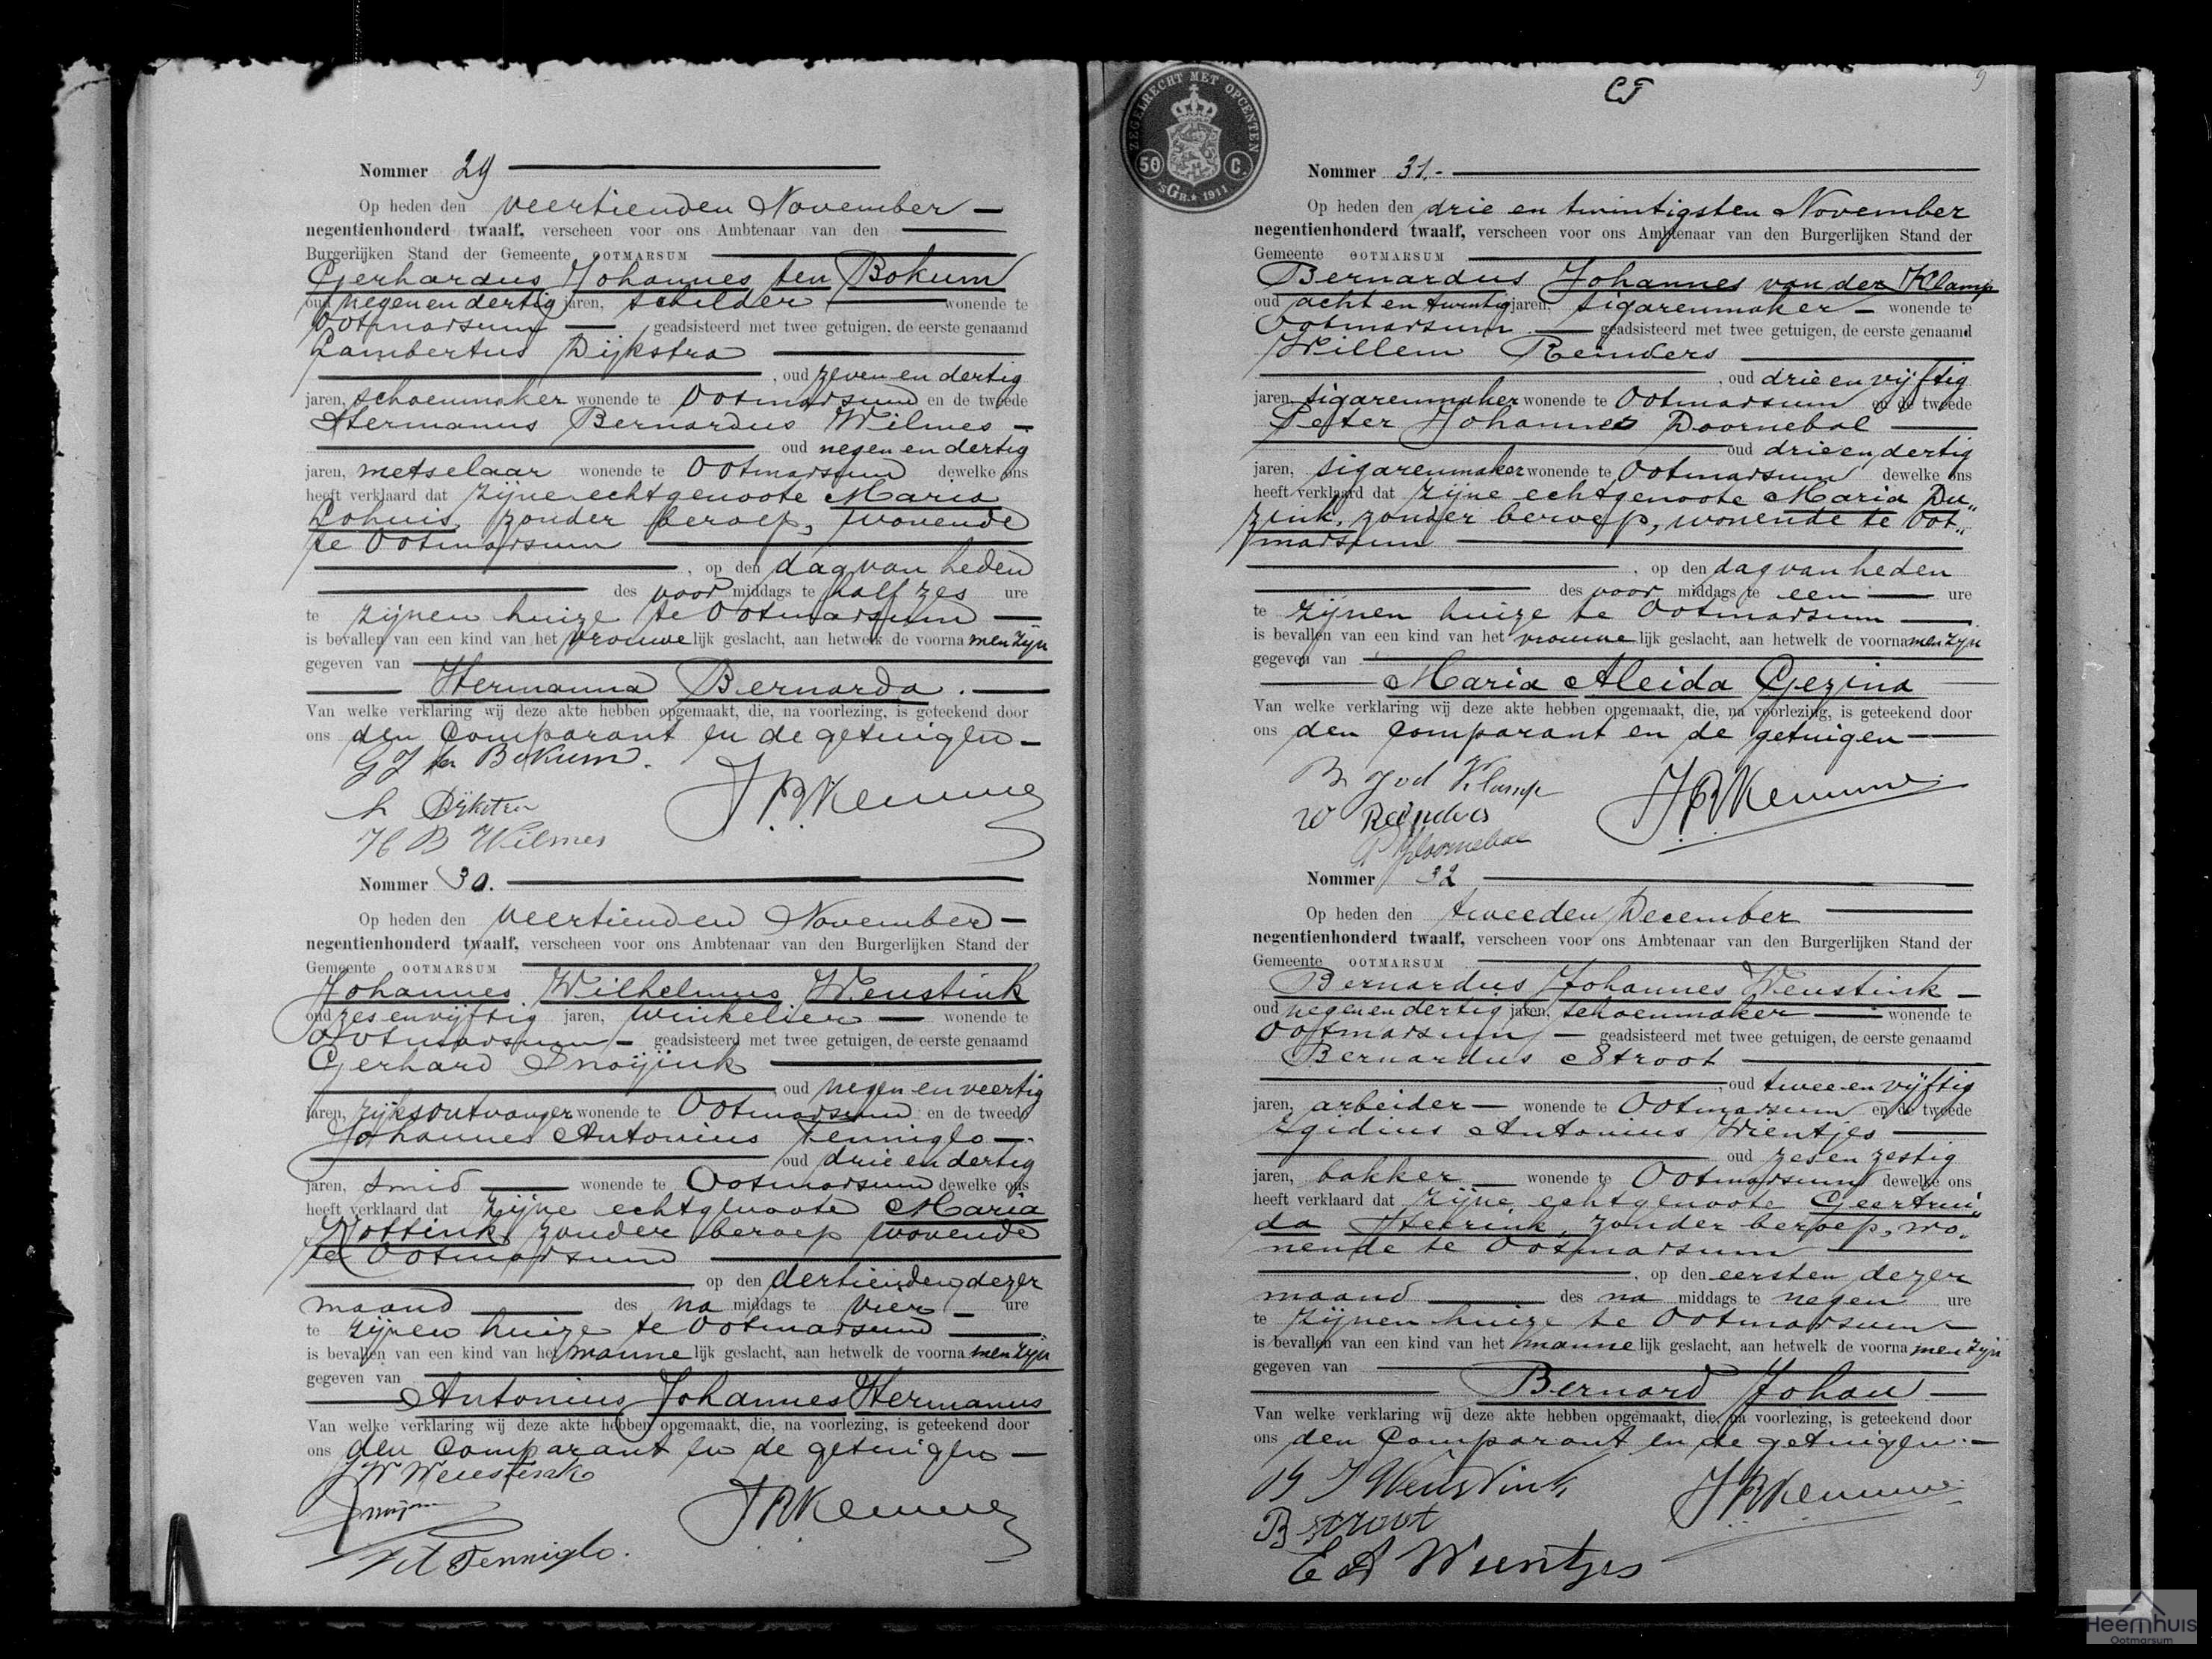 Nommer 29
Op heden den veertienden November
negentienhonderd twaalf, verscheen voor ons Ambtenaar van den
Burgerlijken Stand der Gemeente OOTMARSUM
Gerhardus Johannes ten Bokum
oud negen en dertig jaren, schilder wonende te
Ootmarsum geadsisteerd met twee getuigen, de eerste genaamd
Lambertus Dijkstra
, oud zeven en dertig
jaren, schoenmaker wonende te Ootmarsum en de tweede
Hermanus Bernardus Wilmes
oud negen en dertig
jaren, metselaar wonende te Ootmarsum dewelke ons
heeft verklaard dat zijne echtgenoote Maria
Lohuis, zonder beroep, wonende
te Ootmarsum
, op den dag van heden
des voor middags te half zes ure
te zijnen huize te Ootmarsum
is bevallen van een kind van het vrouwe lijk geslacht, aan hetwelk de voorna men zijn
gegeven van
Hermanna Bernarda.
Van welke verklaring wij deze akte hebben opgemaakt, die, na voorlezing, is geteekend door
ons den Comparant en de getuigen
G J ten Bokum.
L Dijkstra
H B Wilmes
Nommer 30.
Op heden den veertienden November
negentienhonderd twaalf, verscheen voor ons Ambtenaar van den Burgerlijken Stand der
Gemeente OOTMARSUM
Johannes Wilhelmus Weustink
oud zes en vijftig jaren, winkelier wonende te
Ootmarsum geadsisteerd met twee getuigen, de eerste genaamd
Gerhard Snoijink
, oud negen en veertig
jaren, rijksontvanger wonende te Ootmarsum en de tweede
Johannes Antonius Tenniglo
oud drie en dertig
jaren, smid wonende te Ootmarsum dewelke ons
heeft verklaard dat zijne echtgenoote Maria
Nottink, zonder beroep wonende
te Ootmarsum
op den dertienden dezer
maand des na middags te vier ure
te zijnen huize te Ootmarsum
is bevallen van een kind van het manne lijk geslacht, aan hetwelk de voorna men zijn
gegeven van
Antonius Johannes Hermanus
Van welke verklaring wij deze akte hebben opgemaakt, die, na voorlezing, is geteekend door
ons den Comparant en de getuigen
J W Weustink
Tenniglo.
9
ZEGELRECHT MET OPCENTEN
50 C.
'SGR. 1911
Nommer 31.
Op heden den drie en twintigsten November
negentienhonderd twaalf, verscheen voor ons Ambtenaar van den Burgerlijken Stand der
Gemeente OOTMARSUM
Bernardus Johannes van der Klamp
oud acht en twintig jaren, sigarenmaker wonende te
Ootmarsum geadsisteerd met twee getuigen, de eerste genaamd
Willem Reinders
, oud drie en vijftig
jaren, sigarenmaker wonende te Ootmarsum en de tweede
Peter Johannes Doornebal
oud drie en dertig
jaren, sigarenmaker wonende te Ootmarsum dewelke ons
heeft verklaard dat zijne echtgenoote Maria Du„
zink, zonder beroep, wonende te Oot„
marsum
, op den dag van heden
des voor middags te een ure
te zijnen huize te Ootmarsum
is bevallen van een kind van het vrouwe lijk geslacht, aan hetwelk de voorna men zijn
gegeven van
Maria Aleida Gezina
Van welke verklaring wij deze akte hebben opgemaakt, die, na voorlezing, is geteekend door
ons den comparant en de getuigen
B J vd Klamp
W Reinders
P J Doornebal
Nommer 32
Op heden den tweeden December
negentienhonderd twaalf, verscheen voor ons Ambtenaar van den Burgerlijken Stand der
Gemeente OOTMARSUM
Bernardus Johannes Weustink
oud negen en dertig jaren, schoenmaker wonende te
Ootmarsum geadsisteerd met twee getuigen, de eerste genaamd
Bernardus Stroot
, oud twee en vijftig
jaren, arbeider wonende te Ootmarsum en de tweede
Egidius Antonius Wientjes
oud zes en zestig
jaren, bakker wonende te Ootmarsum dewelke ons
heeft verklaard dat zijne echtgenoote Geertrui„
da, zonder beroep, wo„
nende te Ootmarsum
, op den eersten dezer
maand des na middags te negen ure
te zijnen huize te Ootmarsum
is bevallen van een kind van het manne lijk geslacht, aan hetwelk de voorna men zijn
gegeven van
Bernard Johan
Van welke verklaring wij deze akte hebben opgemaakt, die, na voorlezing, is geteekend door
ons den Comparant en de getuigen.
B J Weustink
B Stroot
E A Wientjes
Heemhuis
Ootmarsum